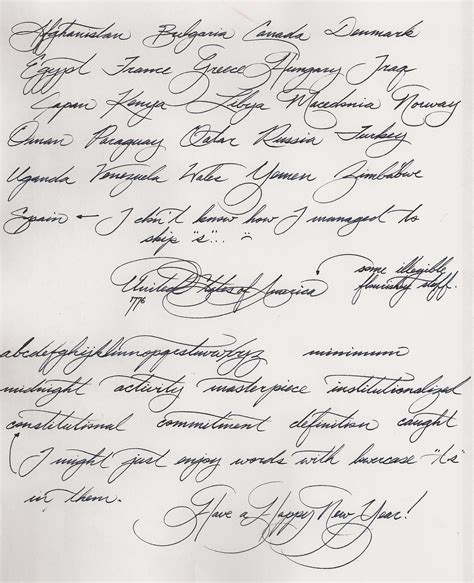 Afghanistan Bulgaria Canada Denmark
Egypt France Greece Hungary Iraq
Japan Kenya Libya Macedonia Norway
Oman Paraguay Qatar Russia Turkey
Uganda Venezuela Wales Yemen Zimbabwe
Spain ← I don't know how I managed to
skip "s"... :(
United States of America
1776
some illegibly
flourishy stuff.
abcdefghijklmnopqrstuvwxyz minimum
midnight activity masterpiece institutionalized
constitutional commitment definition caught
I might just enjoy words with lowercase "t"s
in them.
Have a Happy New Year!